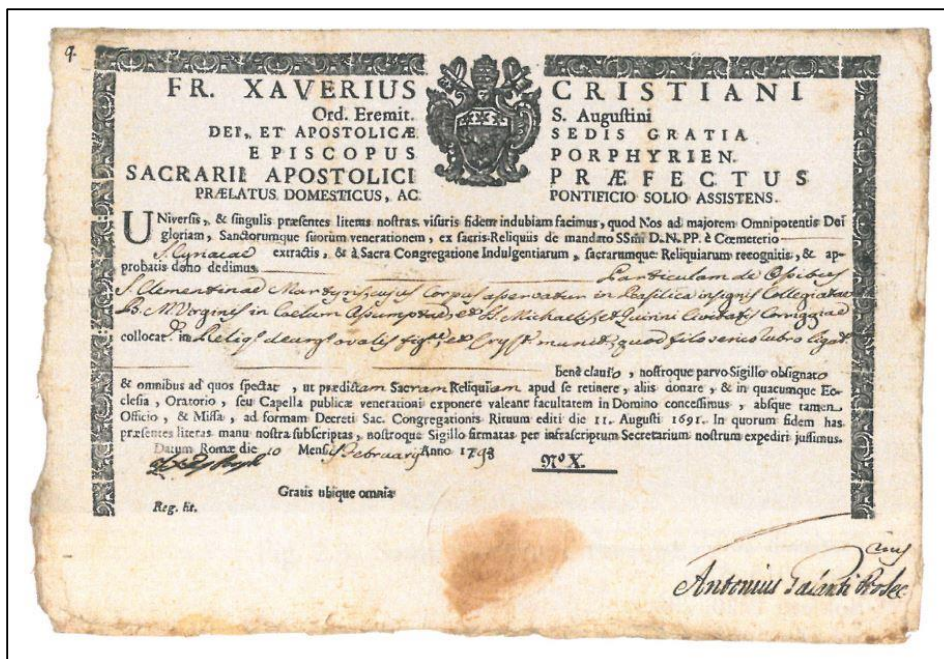 9.
FR. XAVERIUS CRISTIANI
Ord. Eremit. S. Augustini
DEI, ET APOSTOLICÆ SEDIS GRATIA
EPISCOPUS PORPHYRIEN.
SACRARII APOSTOLICI PRÆFECTUS
PRÆLATUS DOMESTICUS, AC PONTIFICIO SOLIO ASSISTENS.
UNiversis, & singulis præsentes literas nostras visuris fidem indubiam facimus, quod Nos ad majorem Omnipotentis Dei
gloriam, Sanctorumque suorum venerationem, ex sacris Reliquiis de mandato SSmi D. N. PP. è Cœmeterio
S. Cyriacae extractis, & à Sacra Congregatione Indulgentiarum, sacrarumque Reliquiarum recognitis, & ap-
probatis dono dedimus Particulam de Ossibus
S. Clementinae Martyris cujus Corpus asservatur in Basilica insignis Collegiatae
B. M. Virginis in Caelum Assumptae, et SS. Michaelis et Quirini Civitatis Corrigiae
collocat. in ovalis et munit quod filo serico rubro
benè clauso, nostroque parvo Sigillo obsignato
& omnibus ad quos spectat, ut prædictam Sacram Reliquiam apud se retinere, aliis donare, & in quacumque Ec-
clesia, Oratorio, seu Capella publicæ venerationi exponere valeant facultatem in Domino concessimus, absque tamen
Officio, & Missa, ad formam Decreti Sac. Congregationis Rituum editi die 11. Augusti 1691. In quorum fidem has
præsentes literas manu nostra subscriptas, nostroque Sigillo firmatas per infrascriptum Secretarium nostrum expediri jussimus.
Datum Romæ die 10 Mensis Februarij Anno 1793 Nº X.
Gratis ubique omnia
Reg. lit.
Antonius